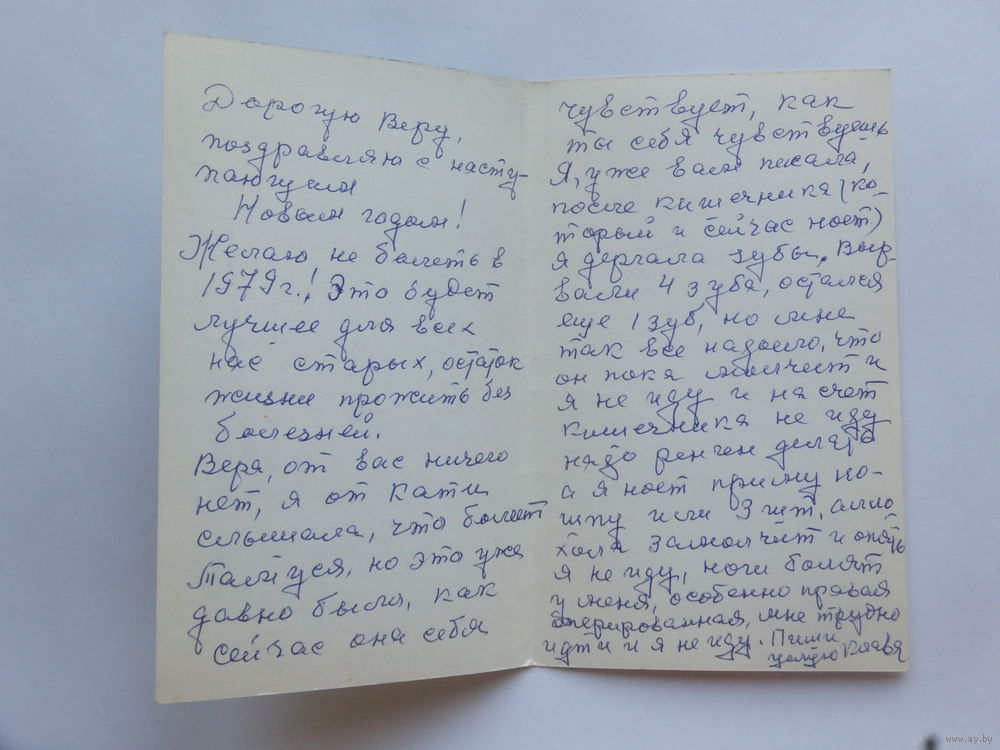 Дорогую Веру,
поздравляю с насту-
пающим
Новым годом!
Желаю не болеть в
1979г.! Это будет
лучшее для всех
нас старых, остаток
жизни прожить без
болезней.
Вера, от вас ничего
нет, я от Кати
слышала, что болеет
Талюся, но это уже
давно было, как
сейчас она себя
чувствует, как
ты себя чувствуешь
Я, уже вам писала,
после кишечника (ко-
торый и сейчас ноет)
я дергала зубы. Выр-
вали 4 зуба, остался
еще 1 зуб, но мне
так все надоело, что
он пока молчит и
я не иду и на счет
кишечника не иду
надо ренген делать
а я ноет приму но-
шпу или 3 шт. алло
хола замолчит и опять
я не иду, ноги болят
у меня, особенно правая
оперированная, мне трудно
идти и я не иду. Пиши
целую Клава
www.ay.by